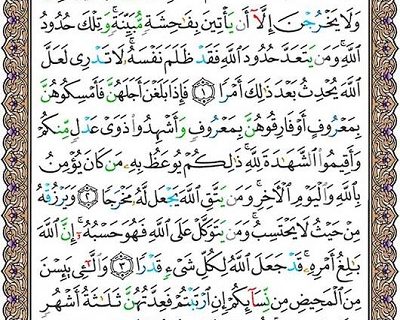 وَلَا يَخْرُجْنَ إِلَّآ أَن يَأْتِينَ بِفَٰحِشَةٍ مُّبَيِّنَةٍ ۚ وَتِلْكَ حُدُودُ
ٱللَّهِ ۚ وَمَن يَتَعَدَّ حُدُودَ ٱللَّهِ فَقَدْ ظَلَمَ نَفْسَهُۥ ۚ لَا تَدْرِى لَعَلَّ
ٱللَّهَ يُحْدِثُ بَعْدَ ذَٰلِكَ أَمْرًا ١ فَإِذَا بَلَغْنَ أَجَلَهُنَّ فَأَمْسِكُوهُنَّ
بِمَعْرُوفٍ أَوْ فَارِقُوهُنَّ بِمَعْرُوفٍ وَأَشْهِدُوا۟ ذَوَىْ عَدْلٍ مِّنكُمْ
وَأَقِيمُوا۟ ٱلشَّهَٰدَةَ لِلَّهِ ۚ ذَٰلِكُمْ يُوعَظُ بِهِۦ مَن كَانَ يُؤْمِنُ
بِٱللَّهِ وَٱلْيَوْمِ ٱلْءَاخِرِ ۚ وَمَن يَتَّقِ ٱللَّهَ يَجْعَل لَّهُۥ مَخْرَجًا ٢ وَيَرْزُقْهُ
مِنْ حَيْثُ لَا يَحْتَسِبُ ۚ وَمَن يَتَوَكَّلْ عَلَى ٱللَّهِ فَهُوَ حَسْبُهُۥٓ ۚ إِنَّ ٱللَّهَ
بَٰلِغُ أَمْرِهِۦ ۚ قَدْ جَعَلَ ٱللَّهُ لِكُلِّ شَىْءٍ قَدْرًا ٣ وَٱلَّٰٓـِٔى يَئِسْنَ
مِنَ ٱلْمَحِيضِ مِن نِّسَآئِكُمْ إِنِ ٱرْتَبْتُمْ فَعِدَّتُهُنَّ ثَلَٰثَةُ أَشْهُرٍ